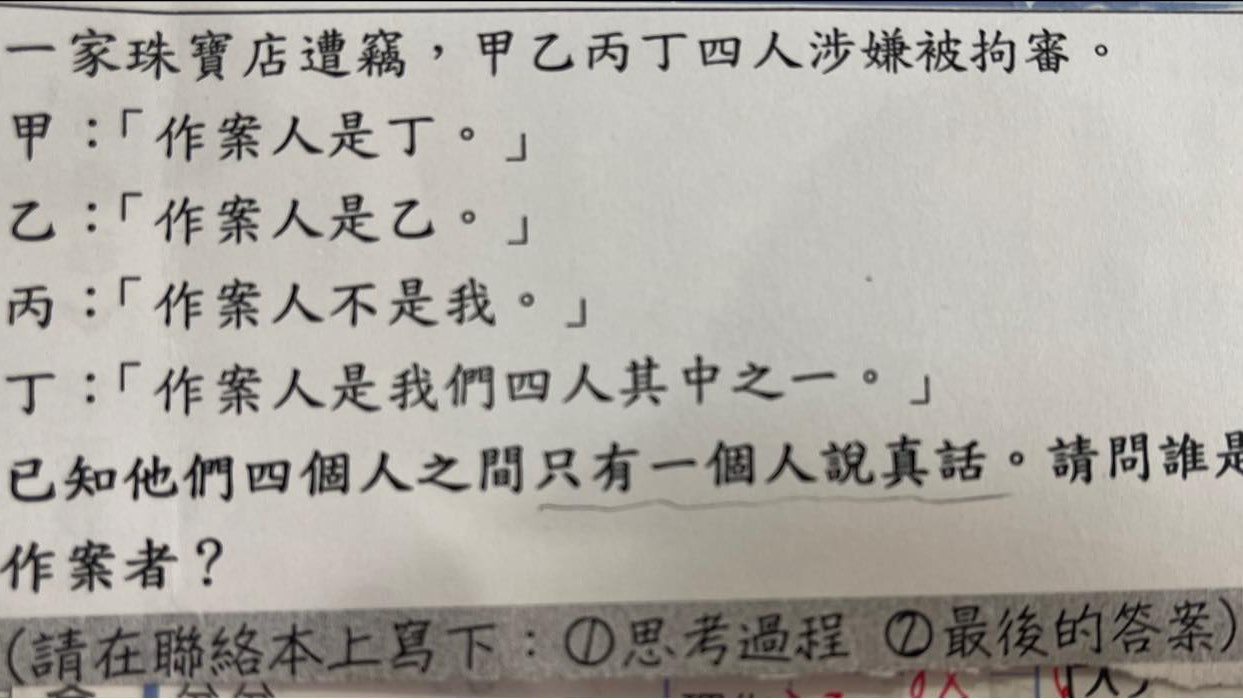 一家珠寶店遭竊，甲乙丙丁四人涉嫌被拘審。
甲：「作案人是丁。」
乙：「作案人是乙。」
丙：「作案人不是我。」
丁：「作案人是我們四人其中之一。」
已知他們四個人之間只有一個人說真話。請問誰是
作案者？
(請在聯絡本上寫下：①思考過程 ②最後的答案)